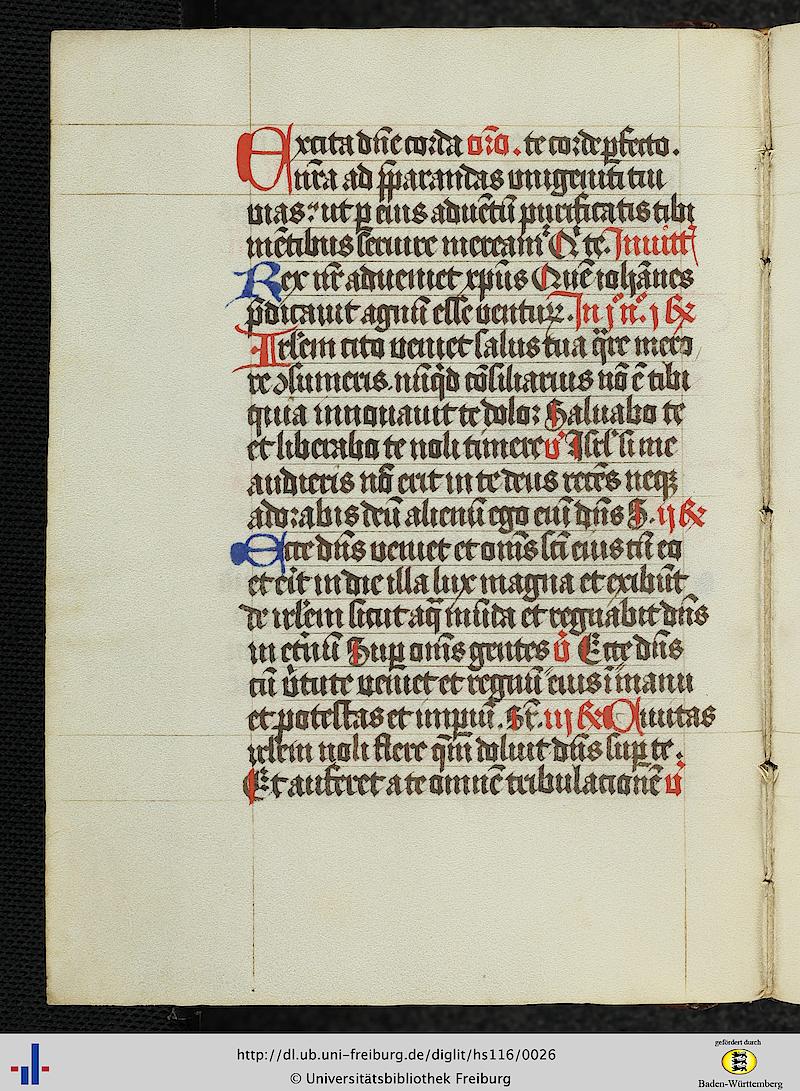 Excita dn̄e corda or̄o . te corde ꝑfecto .
nr̄a ad p̄parandas vnigeniti tui
vias ut ꝑ eius aduētū purificatis tibi
mētibus seruire mereamᷣ Q te. Inuitt
Rex nr̄ adueniet xp̄us Quē ioh̄anes
p̄dicauit agnū esse ventuꝝ. In j n°. j ꝶ
Irl̄em cito veniet salus tua q̄re mero
re ↄsumeris. nūq̇d cōsiliarius nō ē tibi
quia innouauit te dolor Saluabo te
et liberabo te noli timere v̾ Isrl̄ si me
audieris nō erit in te deus recēs neqꝫ
adorabis deū alienū ego eni dn̄s S. ij ꝶ
Ecce dn̄s veniet et om̄s sc̄i eius cū eo
et erit in die illa lux magna et exibūt
de irl̄em sicut aq̄ mūda et regnabit dn̄s
in et̾nū Suꝑ om̄s gentes v̾ Ecce dn̄s
cū v̾tute veniet et regnū eius ī manu
et potestas et impiū . St̄. iij ꝶ Ciuitas
irl̄em noli flere qm̄ doluit dn̄s suꝑ te .
Et auferet a te omnē tribulacionē v̾
http://dl.ub.uni-freiburg.de/diglit/hs116/0026
© Universitätsbibliothek Freiburg
gefördert durch
Baden-Württemberg